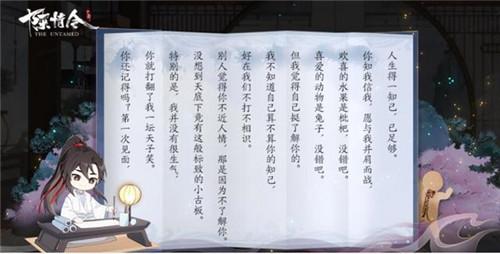 陈情令
THE UNTAMED
你还记得吗？第一次见面，
你就打翻了我一坛天子笑。
特别的是，我并没有很生气。
没想到天底下竟有这般标致的小古板。
别人觉得你不近人情，那是因为不了解你。
好在我们不打不相识。
我不知道自己算不算你的知己，
但我觉得自己挺了解你的。
喜爱的动物是兔子，没错吧。
欢喜的水果是枇杷，没错吧。
你知我信我，愿与我并肩而战，
人生得一知己，已足够。